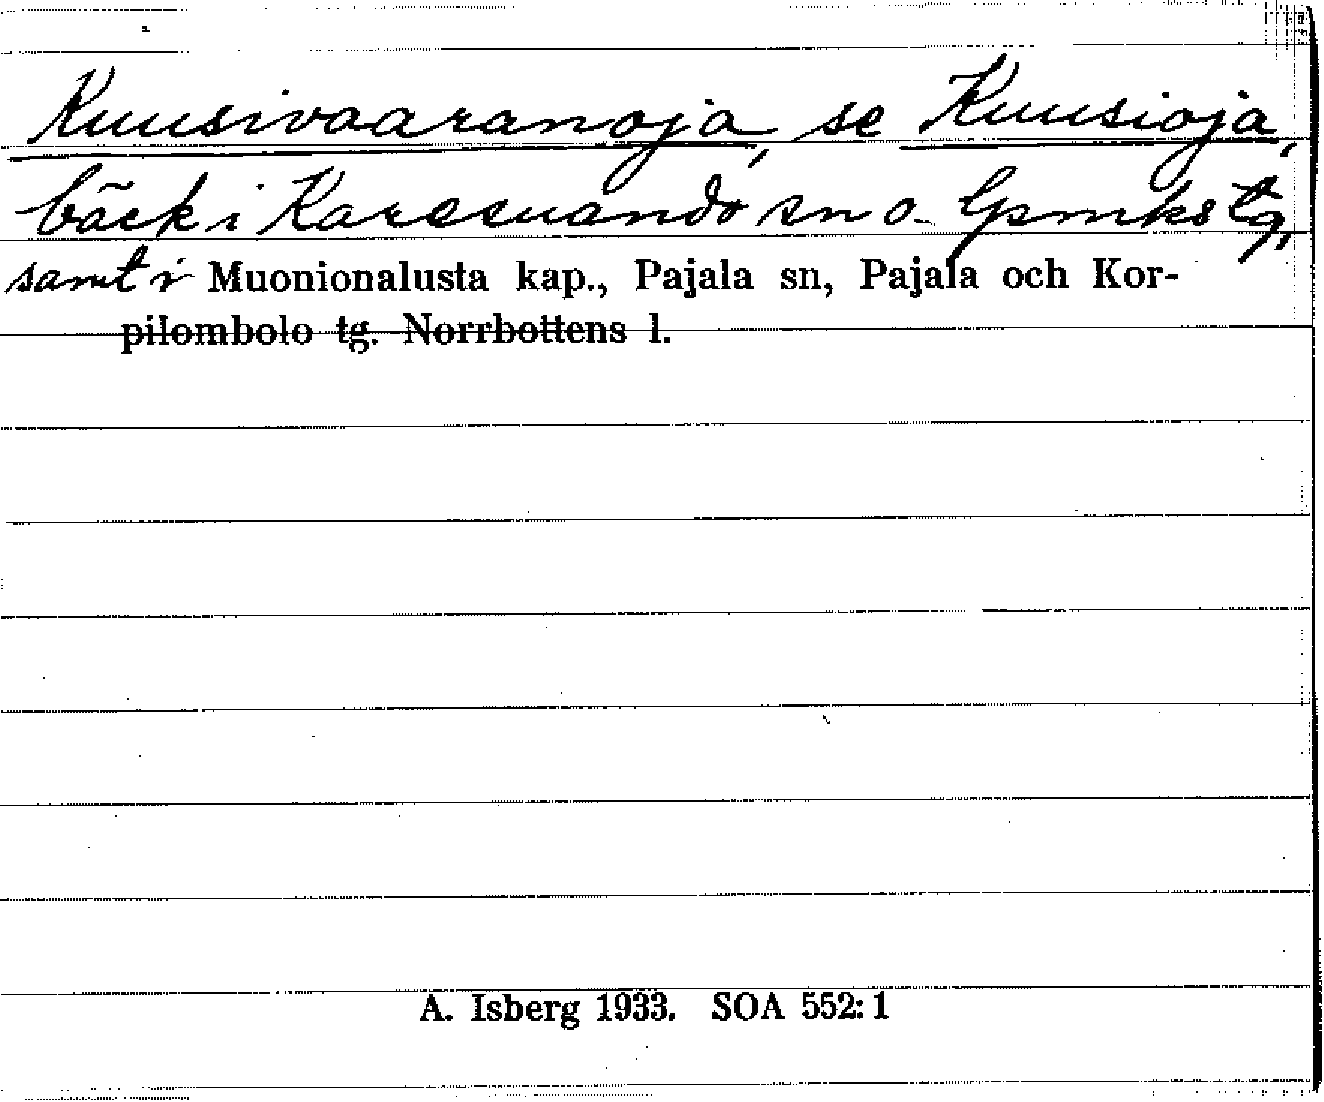 Kuusivaaranoja, se Kuusioja,
bäck i Karesuando sn o. lpmks tg,
samt i Muonionalusta kap., Pajala sn, Pajala och Kor-
pilombolo tg. Norrbottens l.
A. Isberg 1933. SOA 552:1